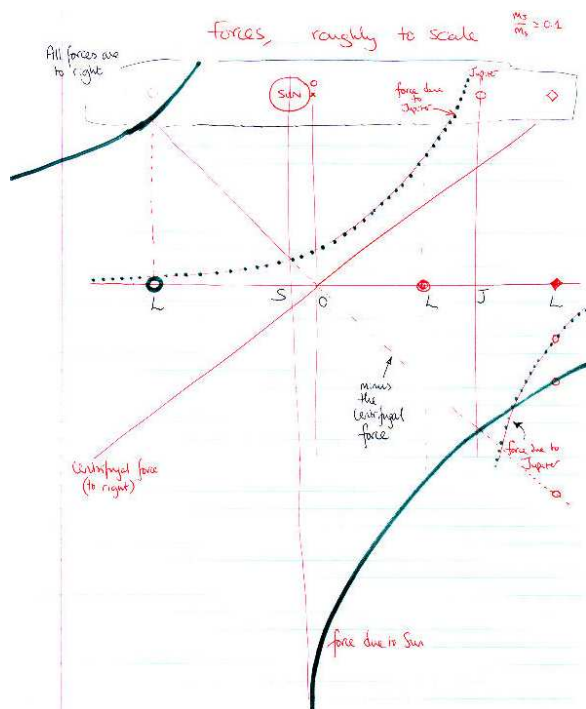 forces, roughly to scale
mJ/ms ≃ 0.1
All forces are
to right
SUN
O
x
force due
to
Jupiter
Jupiter
L
S
O
L
J
L
minus
the
centrifugal
force
centrifugal force
(to right)
force due to
Jupiter
force due to Sun